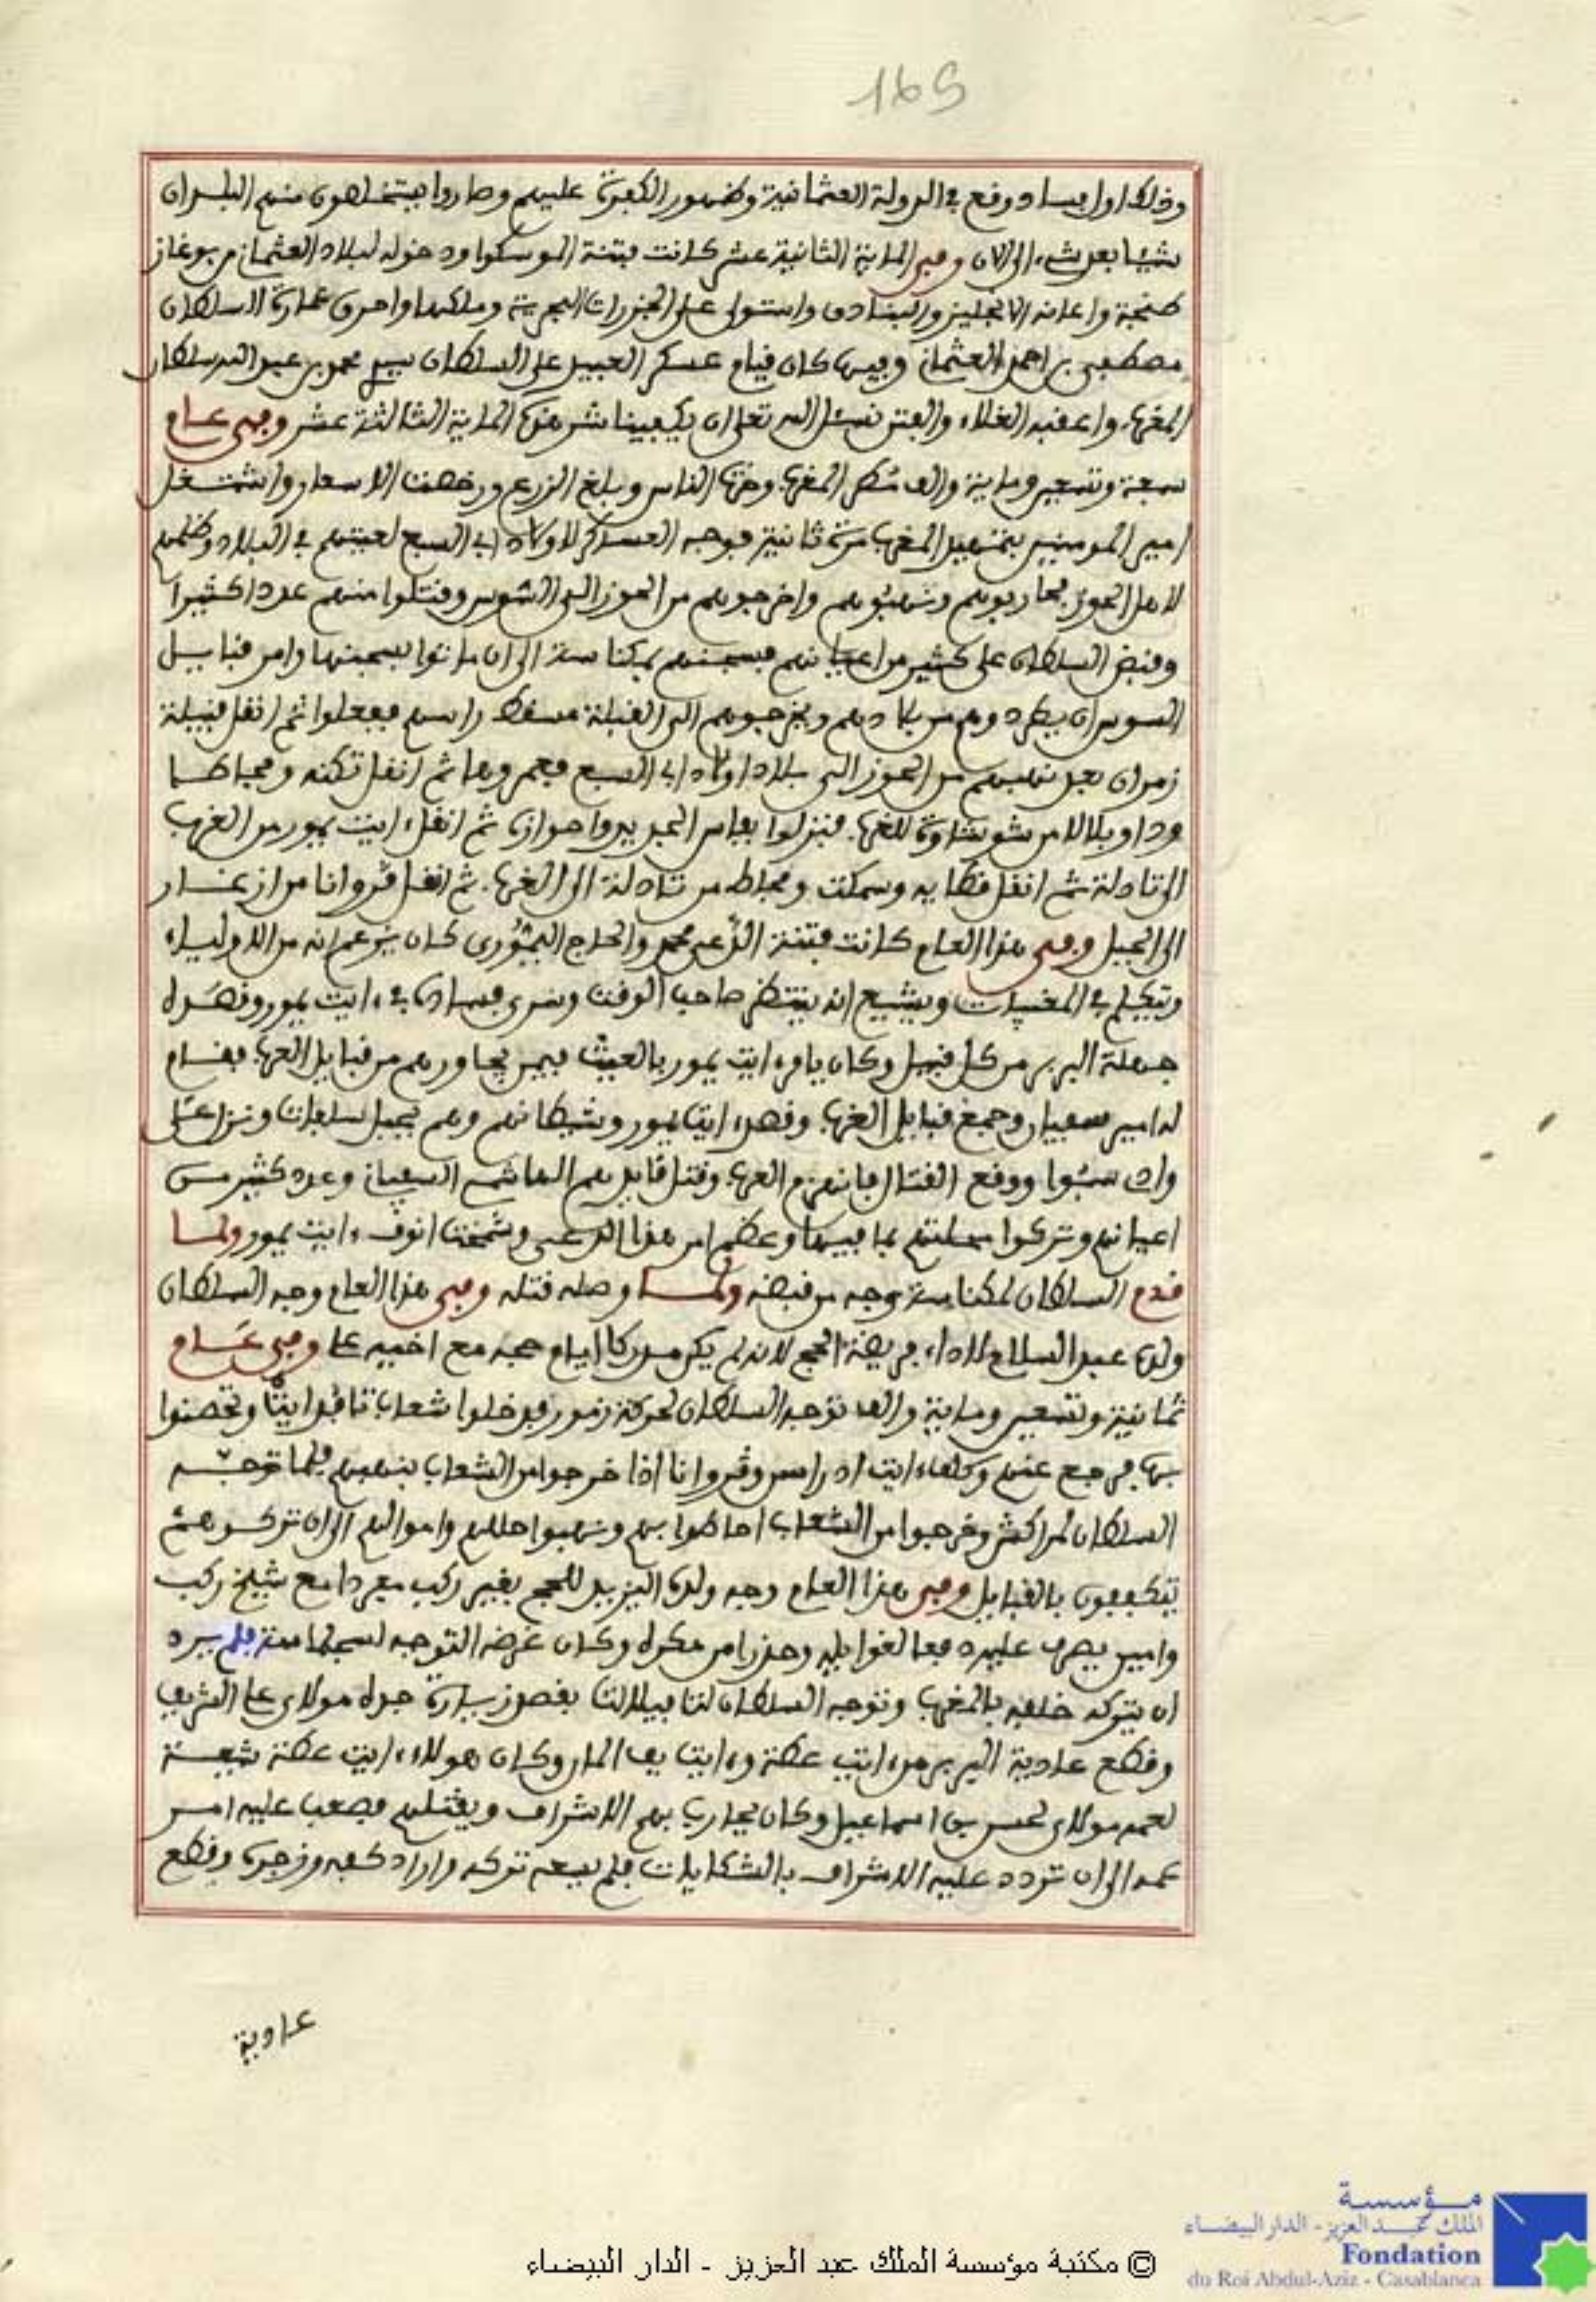 165
وذلك اول فساد وقع في الدولة العثمانية وظهور الكفرة عليهم وصاروا يتخطفون منهم البلدان
شيئا بعد شيء الى الان وفي المائة الثانية عشر كانت فتنة الموسكوا ودخوله لبلاد العثماني من بوغاز
طنجة واعانه الانجليز والبنادق واستولى على الجزرات البحرية وملكها واحرق عمارة السلطان
مصطفى بن احمد العثماني وفيها كان قيام عسكر العبيد على السلطان سيدي محمد بن عبد الله سلطان
المغرب واعقبه الغلاء والفتن نسئل الله تعالى ان يكفينا شر هذه المائة الثالثة عشر وفي عام
سبعة وتسعين ومائة والف مطر المغرب وحرث الناس وبلغ الزرع ورخصت الاسعار واشتغل
امير المومنين بتمهيد المغرب مرة ثانية فوجه العساكر لاولاد ابي السبع لعيثهم في البلاد وظلمهم
لاهل الحوز فحاربوهم ونهبوهم واخرجوهم من الحوز الى السوس وقتلوا منهم عددا كثيرا
وقبض السلطان على كثير من اعيانهم فسجنهم بمكناسة الى ان ماتوا بسجنها وامر قبايل
السوس ان يطردوهم من بلادهم ويخرجوهم الى القبلة مسقط راسهم ففعلوا ثم انقل قبيلة
زمران بعد نهبهم من الحوز الى بلاد اولاد ابي السبع فعمروها ثم انقل تكنه ومجاطا
وذاوبلالا من شوشاوة للغرب فنزلوا بفاس الجديد واحوازه ثم انقل ايت يمور من الغرب
الى تادلة ثم انقل قطاية وسمكت ومجاط من تادلة الى الغرب ثم انقل ڭروانا من ازغار
الى الجبل وفي هذا العام كانت فتنة الدعي محمد والحاج اليموري كان يزعم انه من الاولياء
ويتكلم في المغيبات ويشيع انه ينتظر صاحب الوقت وسرى فساده في ايت يمور وقصده
جهلة البربر من كل قبيل وكان يامر ايت يمور بالعيث فيمن يجاورهم من قبايل الغرب فقام
له امير سفيان وجميع قبايل الغرب وقصدوا ايت يمور وشيطانهم وهم بجبل سلفات ونزل على
واد سبوا ووقع القتال فانهزم الغرب وقتل قايدهم الهاشمي السفياني وعدد كثير من
اعيانهم وتركوا محلتهم بما فيها وعظم امر هذا الدعي وشمخت انوف ايت يمور ولما
قدم السلطان لمكناسة وجه من قبضه ولما وصله قتله وفي هذا العام وجه السلطان
ولده عبد السلام لاداء فريضة الحج لانه لم يكن مدركا ايام حجه مع اخيه علي وفي عام
ثمانية وتسعين ومائة والف توجه السلطان لحركة زمور فدخلوا شعاب تافدايت وتحصنوا
بها فرجع عنهم وكلف ايت ادراسن وڭروانا اذا خرجوا من الشعاب بنهبهم فلما توجه
السلطان لمراكش وخرجوا من الشعاب احاطوا بهم ونهبوا حللهم واموالهم الى ان تركوهم
يتكففون بالقبايل وفي هذا العام وجه ولده اليزيد للحج بغير ركب مفردا مع شيخ ركب
وامين يصرف عليه دفعا لغوايله وحذرا من مكره وكان غرضه التوجه لسجلماسة فلم يرد
ان يتركه خلفه بالمغرب وتوجه السلطان لتافيلالت بقصد زيارة جده مولاي علي الشريف
وقطع عادية البربر من ايت عطة وايت يف المان وكان هولاء ايت عطة شيعة
لعمه مولاي لحسن بن اسماعيل وكان يحارب بهم الاشراف ويقتلهم فصعب عليه امر
عمه الى ان تردد عليه الاشراف بالشكايات فلم يسعه تركه واراد كفه وزجره وقطع
عادية
مؤسسة
الملك عبد العزيز - الدار البيضاء
Fondation
du Roi Abdul-Aziz - Casablanca
© مكتبة مؤسسة الملك عبد العزيز - الدار البيضاء